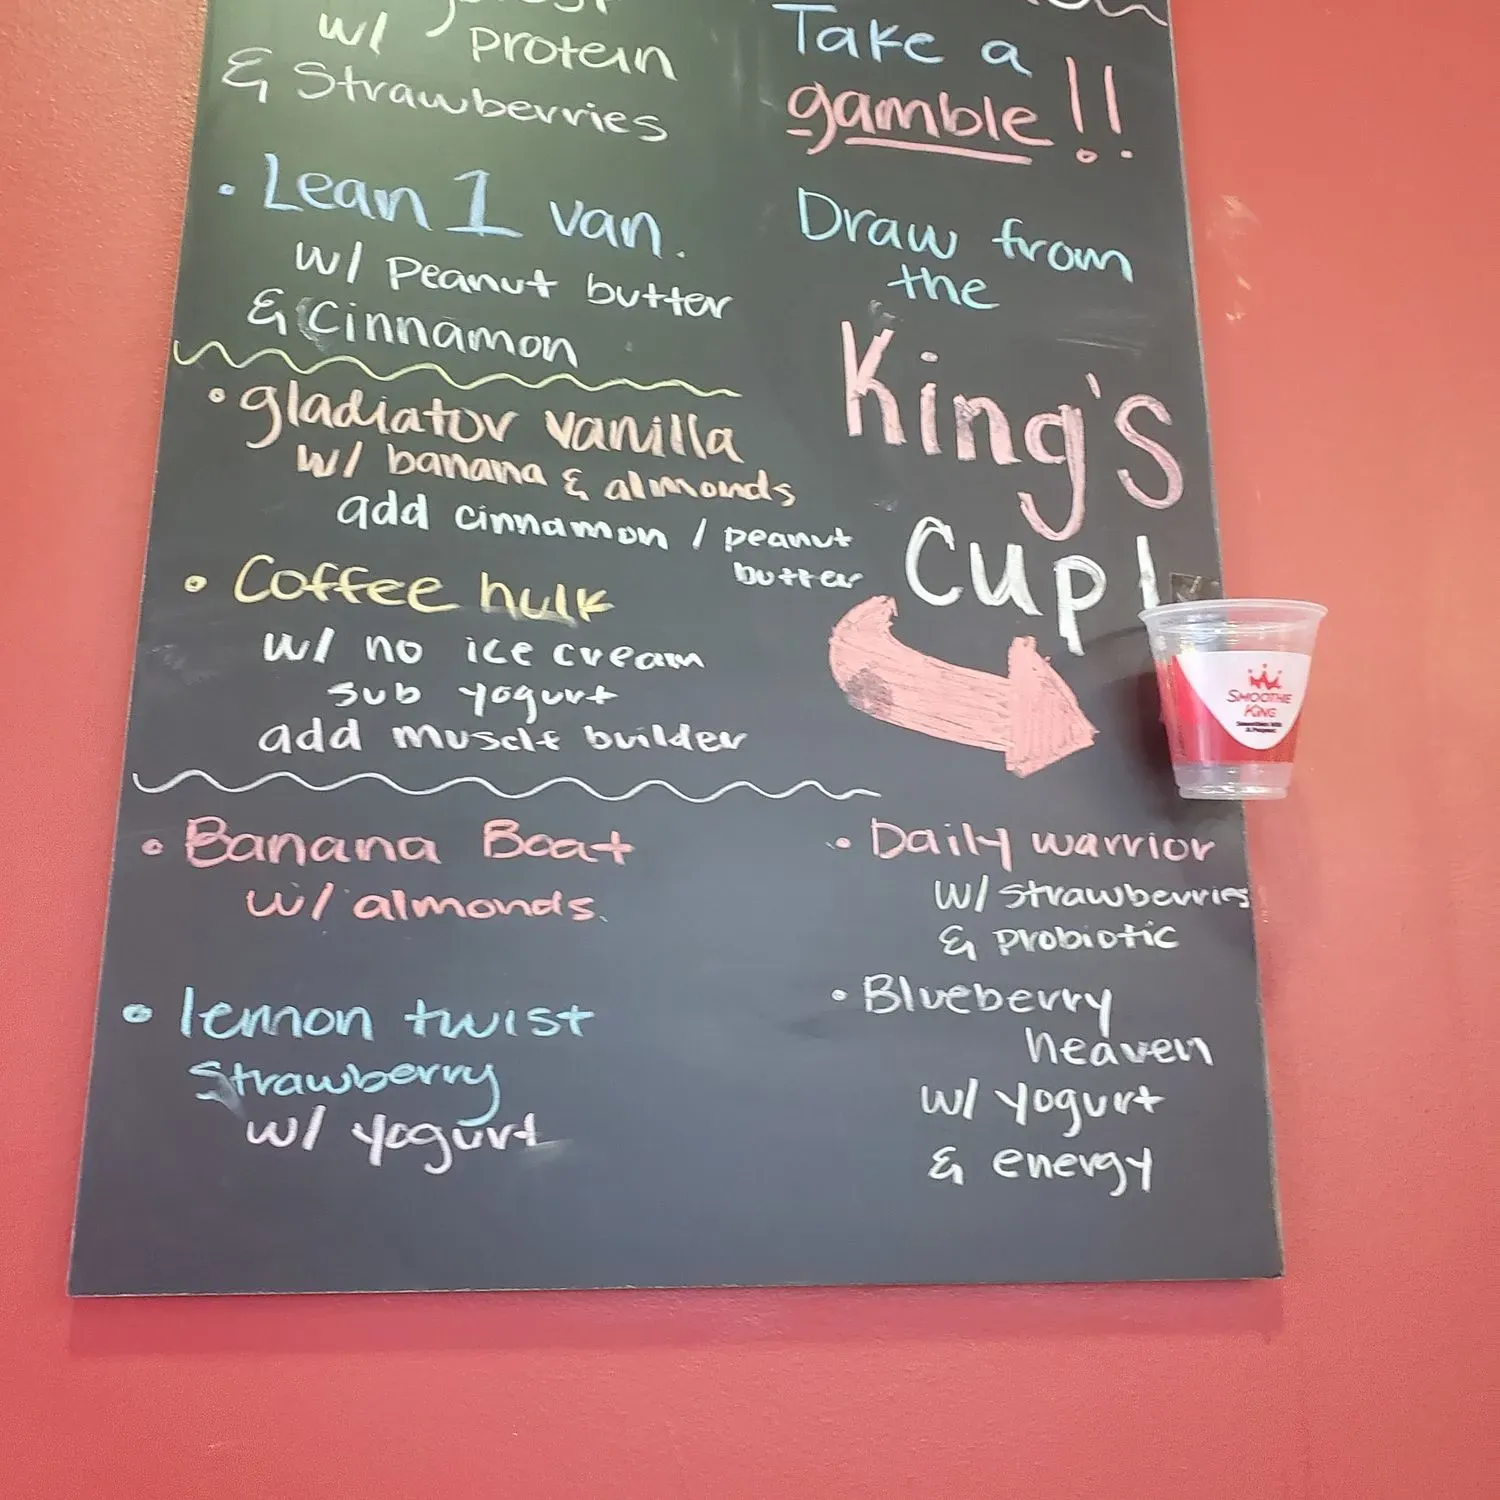 w/ protein
& Strawberries
• Lean 1 van.
w/ peanut butter
& cinnamon
• gladiator vanilla
w/ banana & almonds
add cinnamon / peanut
butter
• Coffee hulk
w/ no ice cream
sub yogurt
add muscle builder
• Banana Boat
w/ almonds.
• lemon twist
Strawberry
w/ yogurt
Take a
gamble!!
Draw from
the
King's
Cup!
SMOOTHIE
KING
• Daily warrior
w/ strawberries
& probiotic
• Blueberry
heaven
w/ yogurt
& energy